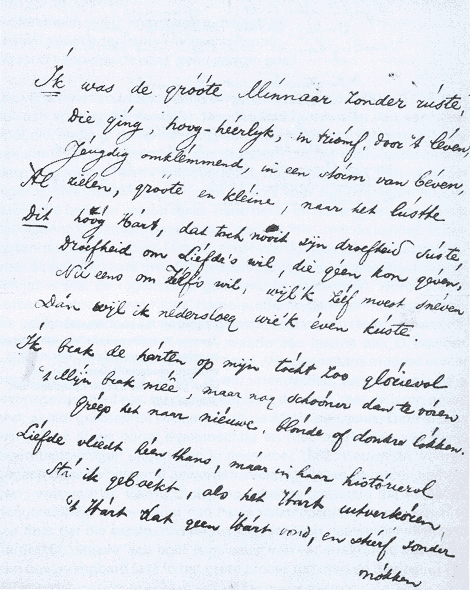 Ík was de gróóte Minnaar zonder rúste,
Die gíng, hoog-héerlyk, in triómf, door 't léven,
Jéugdig omklémmend, in een storm van béven,
Ál zielen, gróote en kléine, naar het lústte
Dít hóóg Hárt, dat toch nóóit zijn droefheid súste,
Dróefheid om Liéfde's wil, die géen kon géven,
Nú eens om Zélfs wil, wijl 'k zélf moest snéven
Dán wijl ik nedersloeg wie 'k éven kúste.
Ík brak de hárten op mijn tócht zoo glóeievol
't Mijn brak méê, maar nog schóóner dan te vóren
Gréep het naar niéuwe, blónde of donkre lókken.
Liéfde vliedt héen thans, máár in haar histórierol
Stá ik geboékt, als het Hárt uitverkóren
't Hárt dat geen Hárt vond, en stiérf zonder
mókken